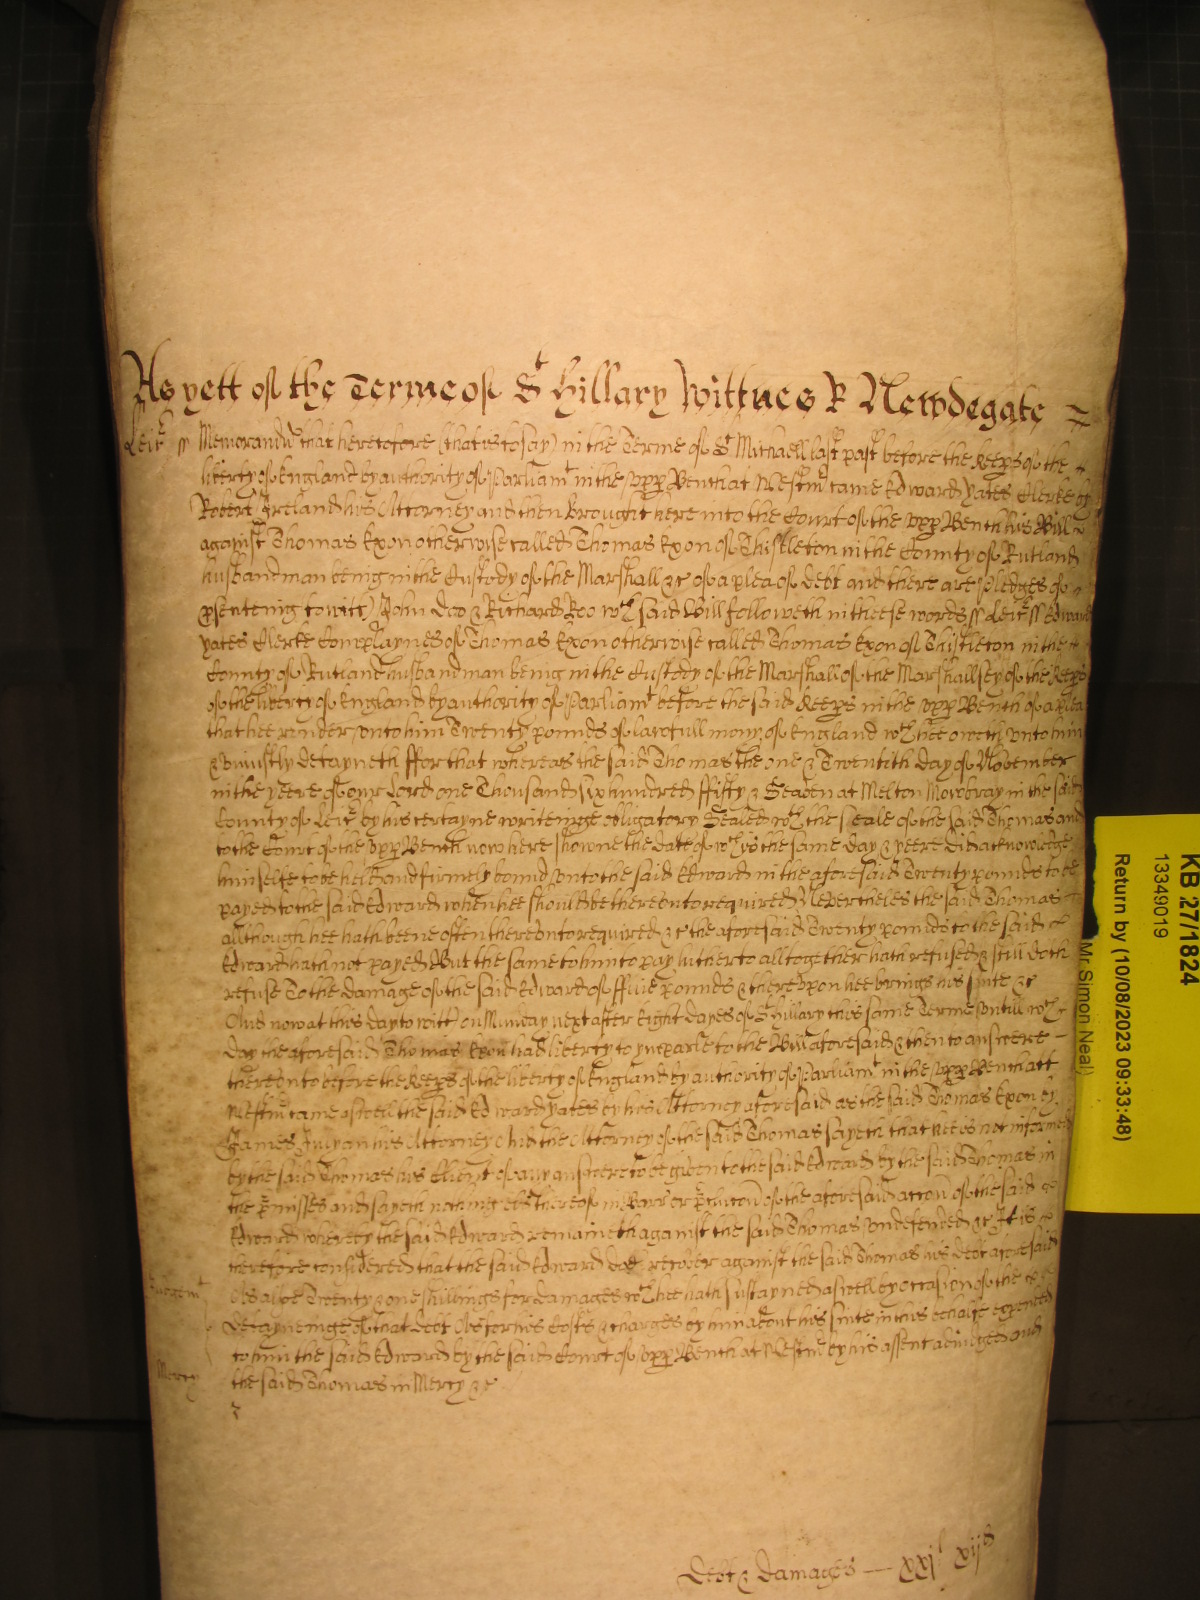 As yett of the Terme of St Hillary Wittnes R Newdegate
Leic ss Memorandu that heretofore (that is to say) in the Terme of St Michaell last past before the Keeps of the
liberty of England by authority of Parliamt in the Vpp Bench at Westmr came Edward Yates Clerke by
Robert Ireland his Attorney and then brought here into the Court of the Vpp Bench his Bill
against Thomas Exon otherwise called Thomas Exon of Thistleton in the County of Rutland
husbandman being in the Custody of the Marshall &c of a plea of debt and there are pledges of
psenteing to witt) John Doo & Richard Roo wch said Bill followeth in theese words ss Leic ss Edward
Yates Clerke Complaynes of Thomas Exon otherwise called Thomas Exon of Thistleton in the
County of Rutland husbandman being in the Custody of the Marshall of the Marshallsey of the Keeps
of the liberty of England by authority of Parliamt before the said Keeps in the Vpp Bench of a plea
that hee render vnto him Twenty pounds of lawfull mony of England wch hee oweth vnto him
& vniustly detayneth ffor that whereas the said Thomas the one & Twentith day of November
in the yeere of our Lord one Thousand six hundred ffifty & Seaven at Melton Mowbray in the said
County of Leic by his certayne writeinge obligatory Sealed wth the seale of the said Thomas and
to the Court of the Vpp Bench now here showne the date of wch is the same day & yeere did acknowledge
himselfe to be held and firmely bound vnto the said Edward in the aforesaid Twenty pounds to be
payed to the said Edward when hee should be therevnto required Nevertheles the said Thomas
allthough hee hath beene often therevnto required &c the aforesaid Twenty pounds to the said
Edward hath not payed But the same to him to pay hitherto alltogether hath refused & still doth
refuse To the damage of the said Edward of ffiue pounds & therevpon hee brings his suite &c
And now at this day to witt on Munday next after Eight dayes of St Hillary this same Terme vntill wch
day the aforesaid Thomas Exon had liberty to ymparle to the Bill aforesaid & then to answere
therevnto before the Keeps of the liberty of England by authority of Parliamt in the Vpp Bench att
Westmr came aswell the said Edward Yates by his Attorney aforesaid as the said Thomas Exon by
James his Attorney And the Attorney of the said Thomas sayeth that hee is not informed
by the said Thomas his Client of any answere to be given to the said Edward by the said Thomas in
the pmisses and sayeth nothing els thereof in Barr or pclucon of the aforesaid accon of the said
Edward whereby the said Edward remaineth against the said Thomas vndefended &c It is
therefore considered that the said Edward doe recover against the said Thomas his debt aforesaid
Judgemt As allsoe Twenty & one shillings for damages wch hee hath sustayned aswell by occasion of the
detayneinge of that debt As for his Costs & charges by him about his suite in this behalfe expended
to him the said Edward by the said Court of Vpp Bench at Westmr by his assent adiudged and
Mercy the said Thomas in Mercy &c
Debt & Damages — xxjl xijd
KB 27/1824
13349019
Return by (10/08/2023 09:33:48)
Mr. Simon Neal)